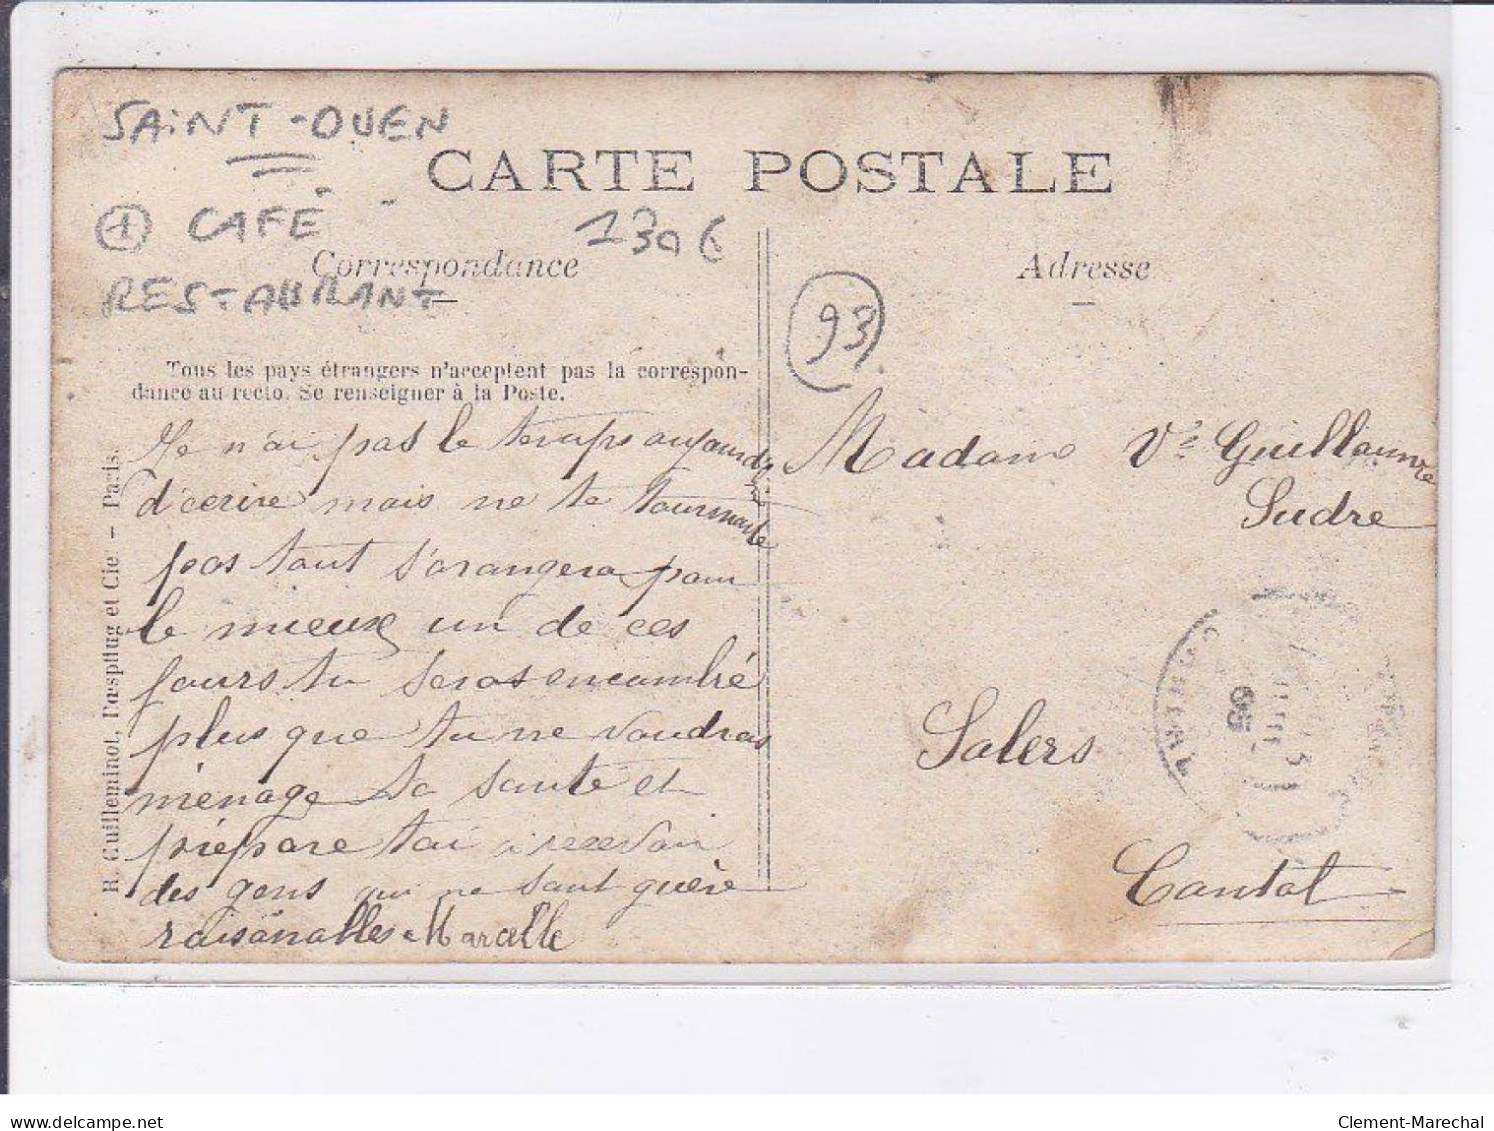 SAiNT-OUEN
CARTE POSTALE
+ CAFÉ
130€
Correspondance
Adresse
RESTAURANT
93
Tous les pays étrangers n'acceptent pas la correspon-
dance au recto. Se renseigner à la Poste.
Je n'ai pas le temps aujourd'hui
d'ecrire mais ne te tourmente
pas tout s'arangera pour
le mieux un de ces
jours tu seras encombré
plus que tu ne voudras
ménage ta santé et
prépare toi à recevoir
des gens qui ne sont guère
raisonables Marcelle
Madame Vve Guillaume
Sudre
Salers
Cantal
R. Guilleminot, Bœspflug et Cie - Paris.
05
delcampe.net
Clement-Marechal